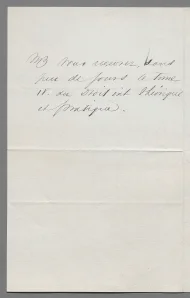 NB Vous recevrez dans
peu de jours le tome
II. du Droit int. théorique
et pratique.